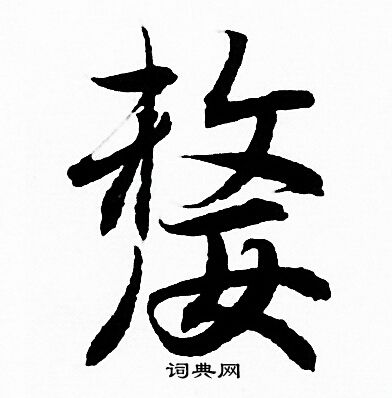 嫠
词典网